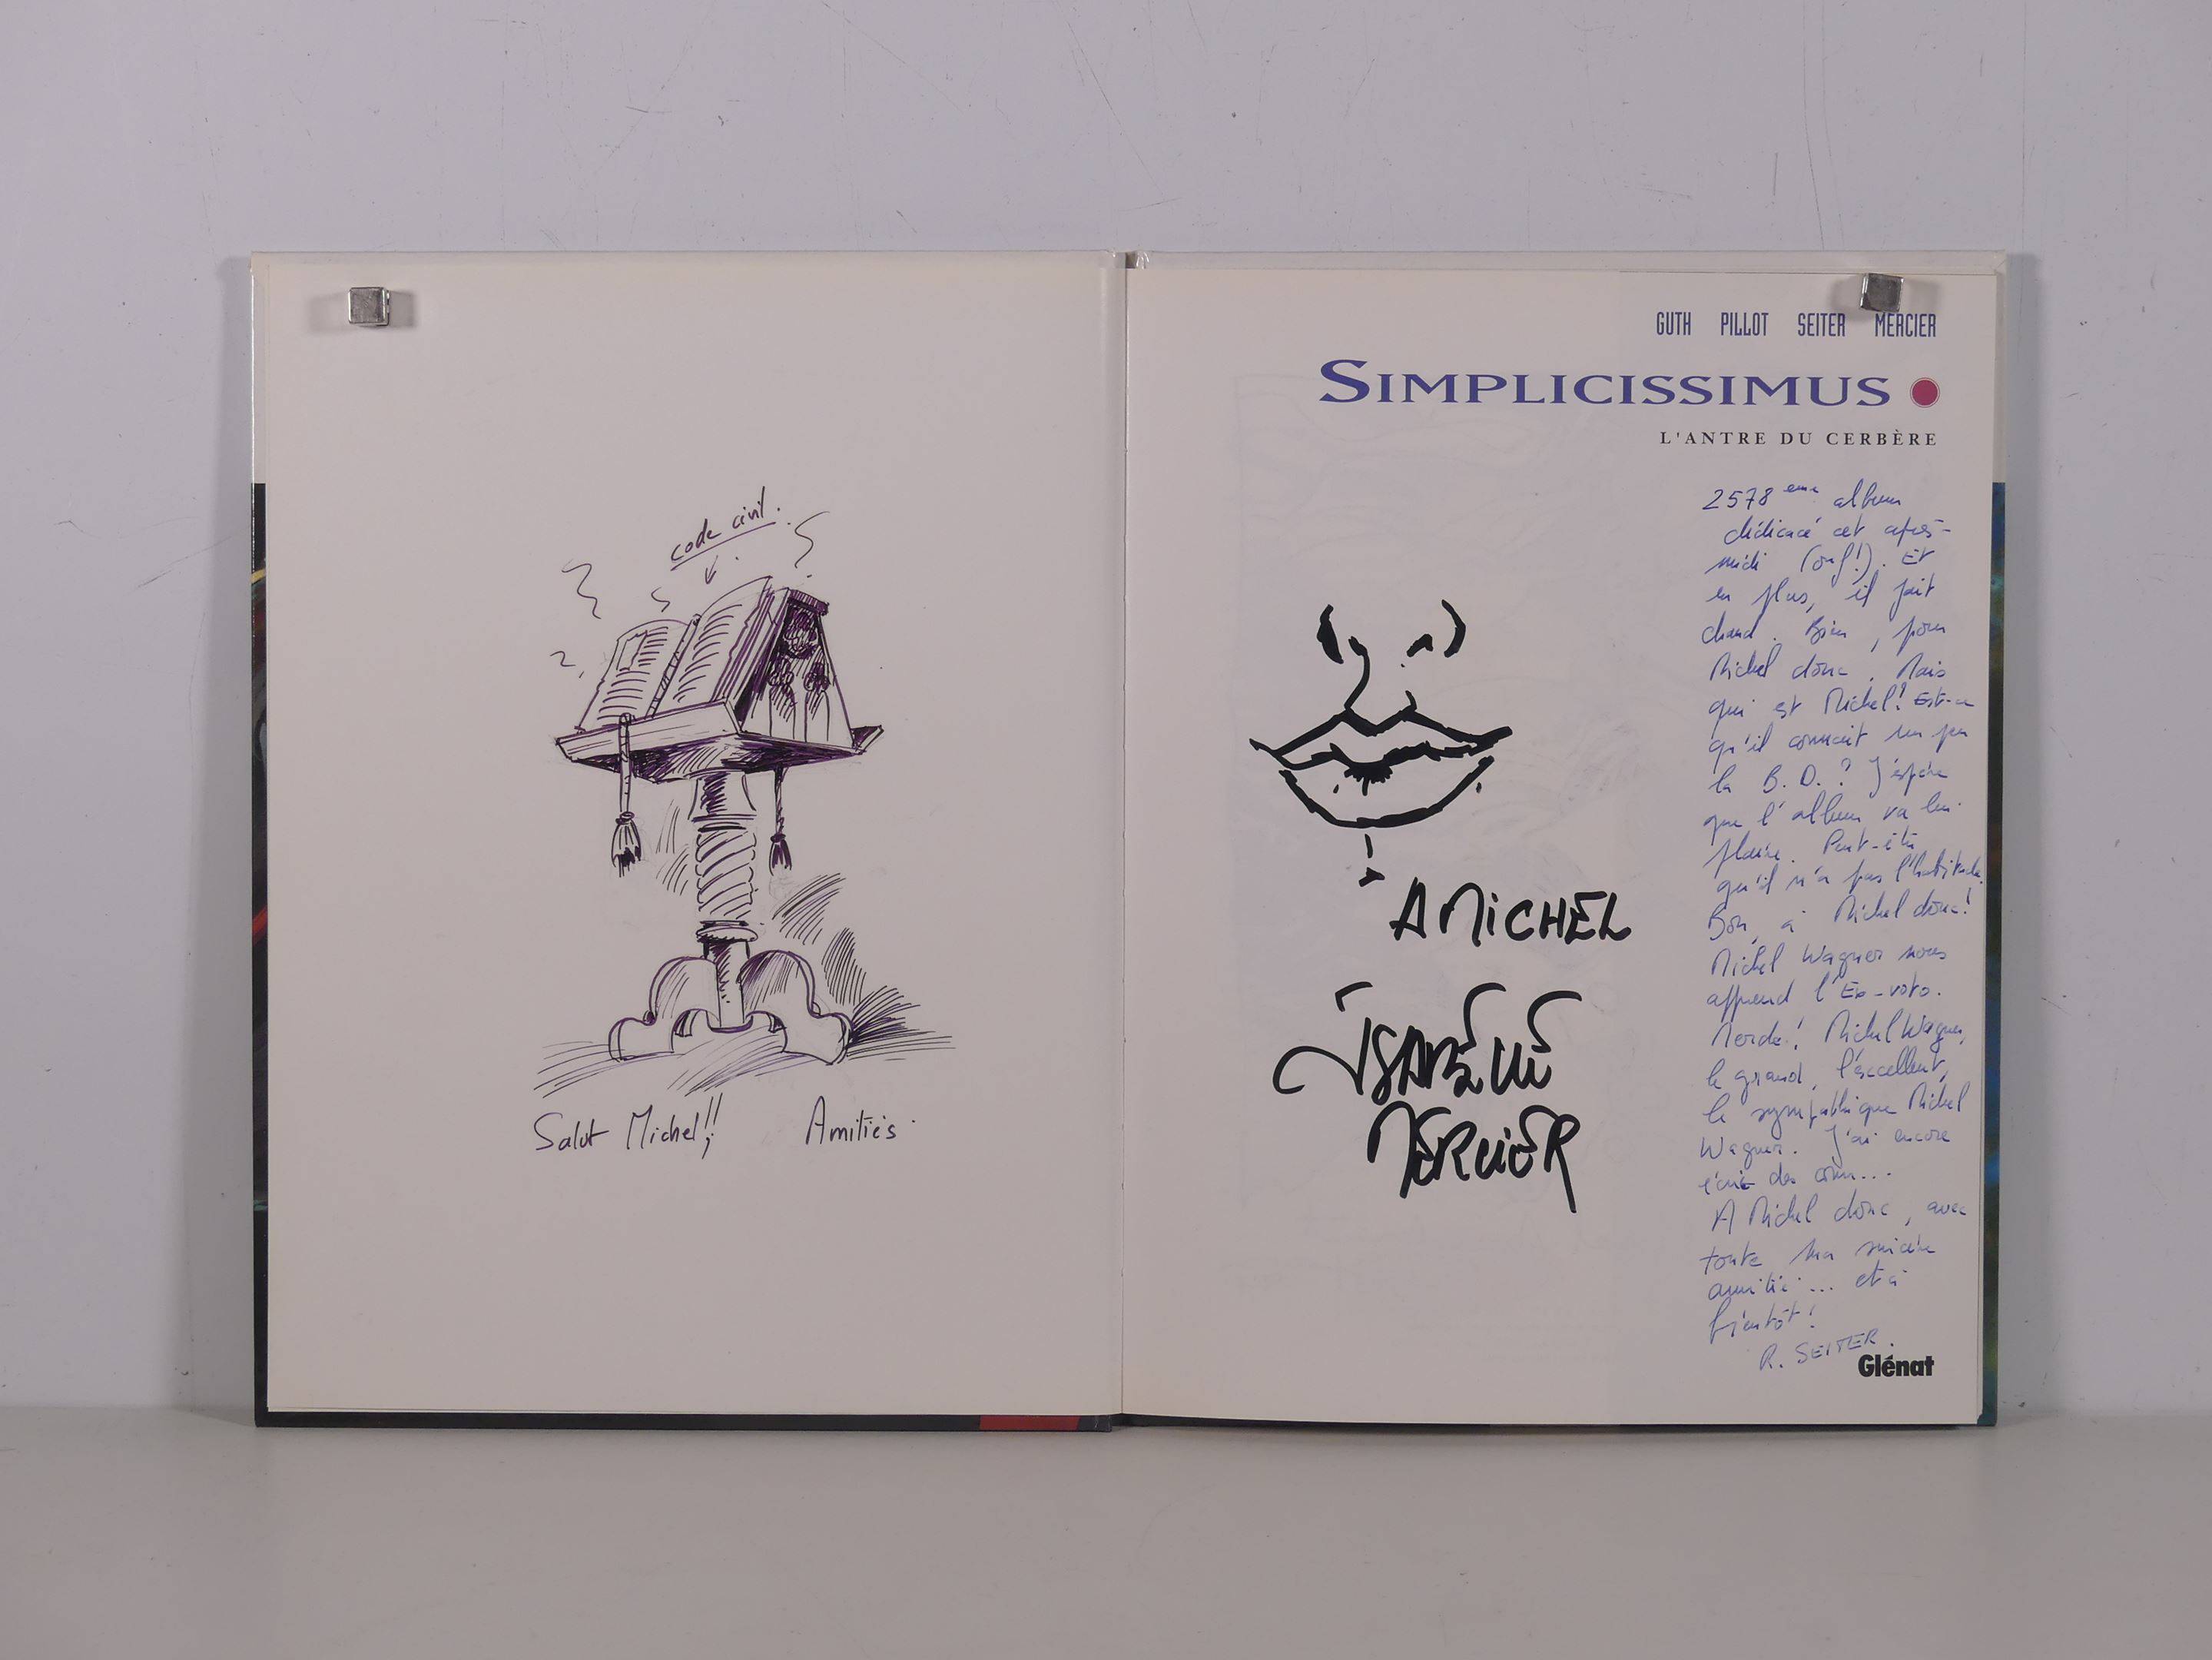 code civil.
Salut Michel!!
Amitiés.
GUTH PILLOT SEITER MERCIER
SIMPLICISSIMUS
L'ANTRE DU CERBÈRE
A MICHEL
ISABELLE
MERCIER
2578 eme album
dédicacé cet après-
midi (ouf!). Et
en plus, il fait
chaud. Bien, pour
Michel donc. Mais
qui est Michel? Est-ce
qu'il connait un peu
la B.D.? J'espère
que l'album va lui
plaire. Peut-être
qu'il n'a pas l'habitude.
Bon, à Michel donc!
Michel Wagner nous
apprend l'Ex-voto.
Merde! Michel Wagner,
le grand, l'excellent,
le sympathique Michel
Wagner. J'ai encore
écrit des conn...
A Michel donc, avec
toute ma sincère
amitié... et à
bientôt!
R. SEITER.
Glénat